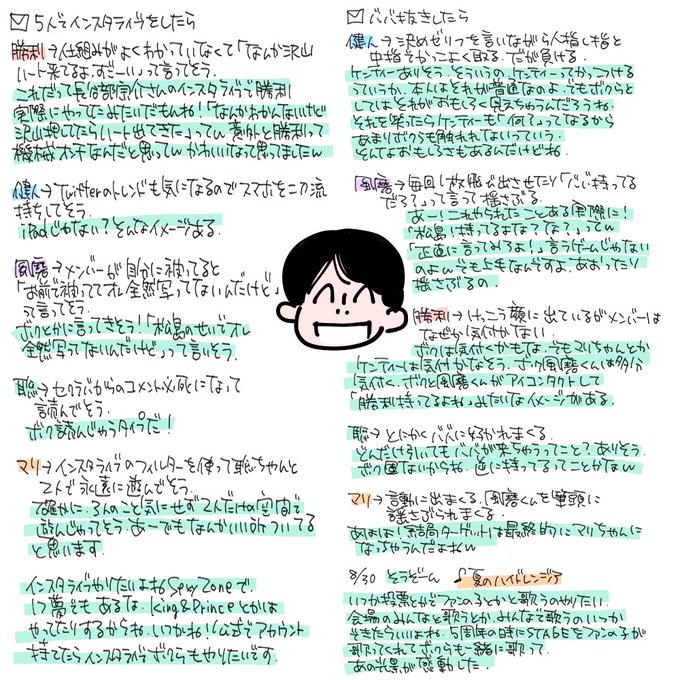 5人でインスタライブをしたら
勝利→仕組みがよくわかっていなくて「なんか沢山
ハート来てるよ、おーい」って言ってそう。
これだって長谷部宗介さんのインスタライブで勝利
実際にやってたみたいだもんね!「なんかわかんないけど
沢山押してたらハート出てきた」ってw 意外と勝利って
機械オンチなんだと思ってw かわいいなって思ってましたw
健人→Twitterのトレンドも気になるのでスマホを二刀流
持ちしてそう。
iPadじゃない?そんなイメージある。
風磨→メンバーが自分に被ってると
「お前で被っててオレ全然写ってないんだけど」
って言ってそう。
ボクとかに言ってきそう!「松島のせいでオレ
全然写ってないんだけど」って言いそう。
聡→セクラバからのコメント必死になって
読んでそう。
ボク読んじゃうタイプだ!
マリ→インスタライブのフィルターを使って聡ちゃんと
2人で永遠に遊んでそう。
確かに、3人のこと気にせず2人だけの空間で
遊んじゃってそう。あーでもなんかいい所ついてる
と思います。
インスタライブやりたいよねSexy Zoneで。
1つ夢でもあるな。King&Princeとかは
やってたりするからね。いつかね!公式でアカウント
持てたらインスタライブボクらもやりたいです。
ババ抜きしたら
健人→決めゼリフを言いながら人指し指と
中指でかっこよく取る。だが負ける。
ケンティーありそう。そういうの、ケンティーってかっこつける
っていうか、本人はそれが普通なのよ。でもボクらと
してはそれがおもしろく見えちゃうんだろうね。
それを笑ったらケンティーも「何で?」ってなるから
あまりボクも触れれないっていう。
そんなおもしろさもあるんだけどね。
風磨→毎回1枚飛び出させたり「ババ持ってる
だろ?」って言って揺さぶる。
あー!これやられたことある実際に!
「松島!持ってるよな?な?」ってw
「正直に言ってみろよ!」言うゲームじゃない
のよwでも上手なんですよ、あおったり
揺さぶるの。
勝利→けっこう顔に出ているがメンバーは
なぜか気付かない。
ボクは気付くかもな。でもマリちゃんとか
ケンティーは気付かなそう。ボク風磨くんは多分
気付く。ボクと風磨くんがアイコンタクトして
「勝利持ってるよね」みたいなイメージがある。
聡→とにかくババに好かれまくる。
どんだけ引いてもババが来ちゃうってこと?ありそう。
ボク運ないからね。逆に持ってるってことかなw
マリ→言動に出まくる。風磨くんを筆頭に
揺さぶられまくる。
あはは!結局ターゲットは最終的にマリちゃんに
なっちゃうんだよねw
8/30 とらじおーん 夏のハイドレンジア
いつか投票とかでファンの子とか歌うのやりたい。
会場のみんなと歌うとか、みんなで歌うのいつか
できたらいいよね。5周年の時にSTAGEをファンの子が
歌ってくれてボクらも一緒に歌って。
あの光景が感動した。